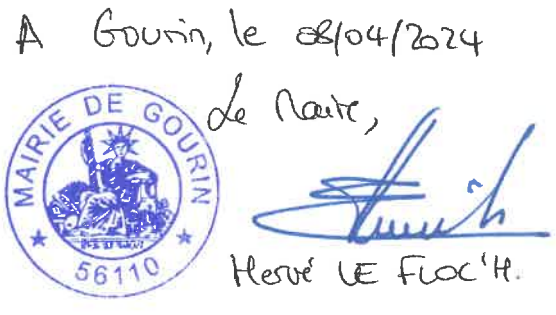 A Gourin, le 08/04/2024
Le Maire,
MAIRIE DE GOURIN
56110
Hervé LE FLOC'H.